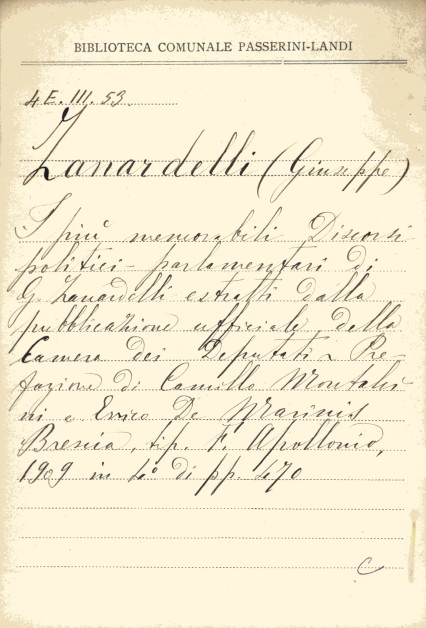 BIBLIOTECA COMUNALE PASSERINI-LANDI
4E.III.53
Zanardelli (Giuseppe)
I più memorabili Discorsi
politici-parlamentari di
G. Zanardelli estratti dalla
pubblicazione ufficiale della
Camera dei Deputati. Pre-
fazione di Camillo Montalci-
ni e Enrico De Marinis
Brescia, tip. F. Apollonio,
1909 in 4° di pp. 470
C